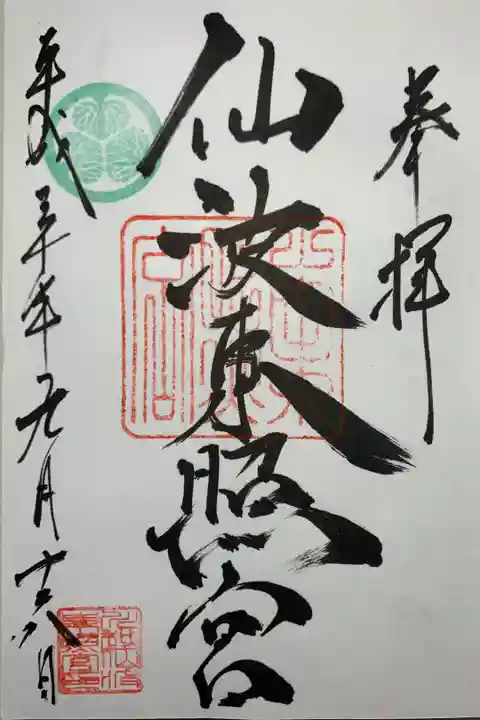 奉拝
仙波東照宮
平成三十年九月十六日